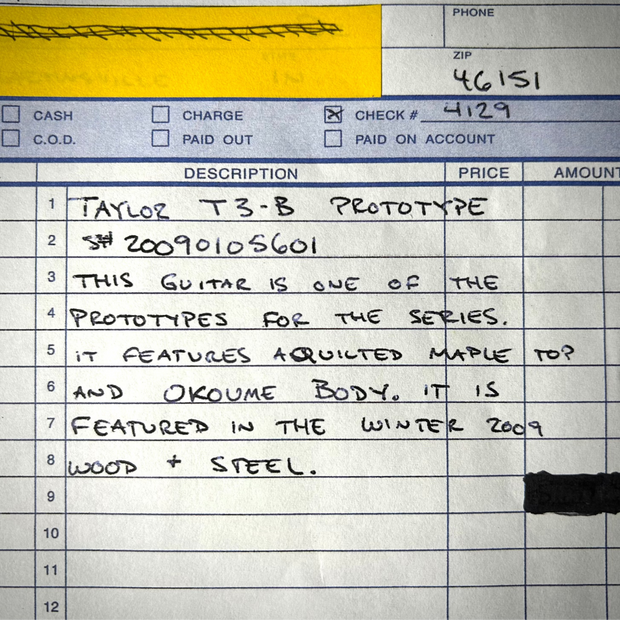 PHONE
ZIP
46151
CASH CHARGE CHECK # 4129
C.O.D. PAID OUT PAID ON ACCOUNT
DESCRIPTION PRICE AMOUNT
1 TAYLOR T3-B PROTOTYPE
2 S# 20090105601
3 THIS GUITAR IS ONE OF THE
4 PROTOTYPES FOR THE SERIES.
5 IT FEATURES A QUILTED MAPLE TOP
6 AND OKOUME BODY. IT IS
7 FEATURED IN THE WINTER 2009
8 WOOD + STEEL.
9
10
11
12